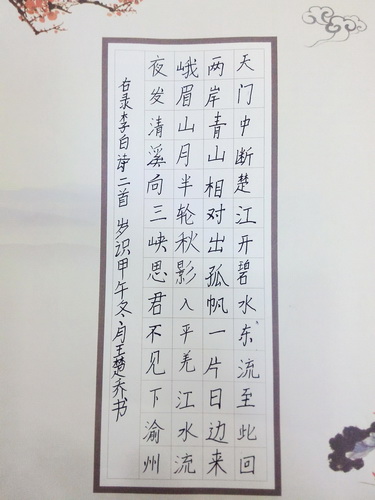 天门中断楚江开碧水东流至此回
两岸青山相对出孤帆一片日边来
峨眉山月半轮秋影入平羌江水流
夜发清溪向三峡思君不见下渝州
右录李白诗二首 岁识甲午冬月王楚乔书